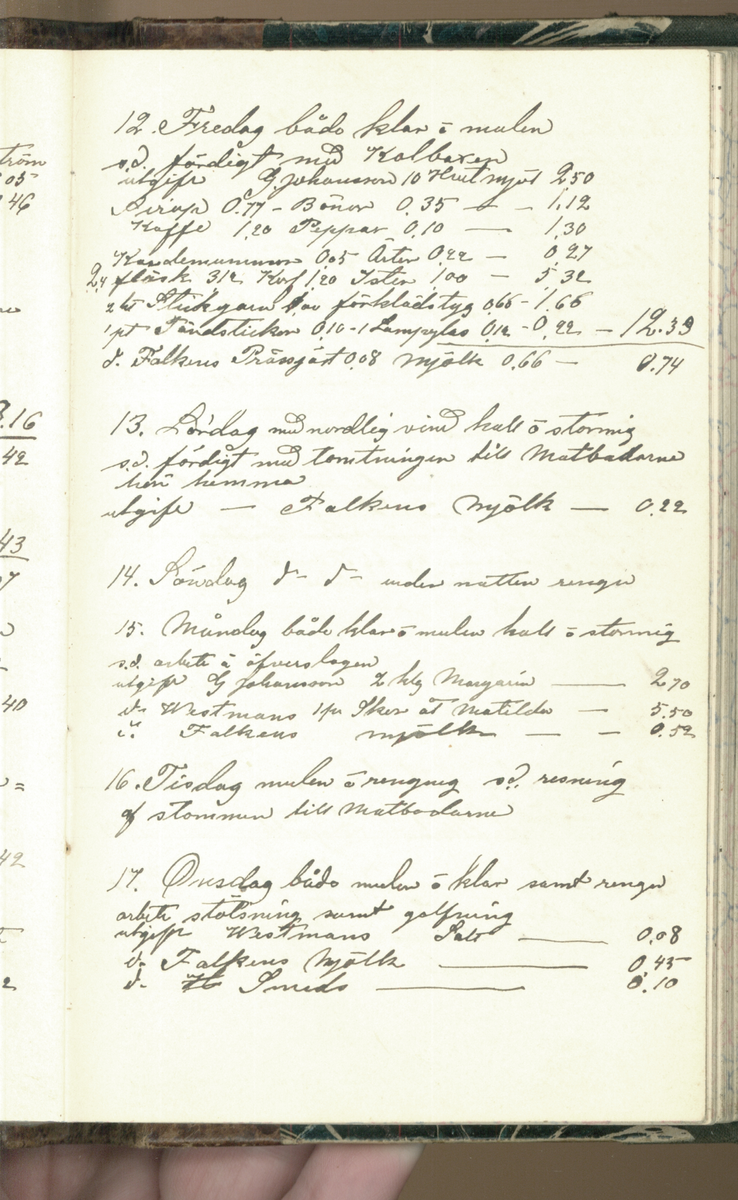 12. Fredag både klar o mulen
s.d. färdigt med Kolboxen
utgifr G. Johansson 10 Hvetmjöl 2,50
Sirap 0.77 - Bönor 0.35 — - 1,12
Kaffe 1,20 Peppar 0,10 — 1,30
Kardemummor 0,05 Ärter 0,22 — 0,27
2,4 fläsk 3,12 Korf 1,20 Ister 1,00 — 5,32
2 ht Stickgarn 1,00 förklädstyg 0,66 - 1,66
1 pt Tändstickor 0,10 - 1 Lampglas 0,12 - 0,22 — 12.39
d. Falkens Prässjäst 0,08 Mjölk 0.66 — 0.74
13. Lördag med nordlig vind kall o stormig
s.d. färdigt med tomtningen till Matbodarne
här hemma
utgifr — Falkens Mjölk — 0.22
14. Söndag d- d- under natten rengn
15. Måndag både klar o mulen kall o stormig
s.d. arbete å öfverslagen
utgifr G Johansson 2 kg Margarin — 2,70
d- Westmans 1 pr Skor åt Matilda — 5.50
d: Falkens Mjölk — - 0.52
16. Tisdag mulen o rengnig s.d. resning
af stommen till Matbodarne
17. Onsdag både mulen o klar samt rengn
arbete stötsning samt golfning
utgifr Westmans Salt — 0.08
d- Falkens Mjölk — 0,45
d- Smeds — 0.10
ström
05
46
3.16
42
43
7
40
42
2